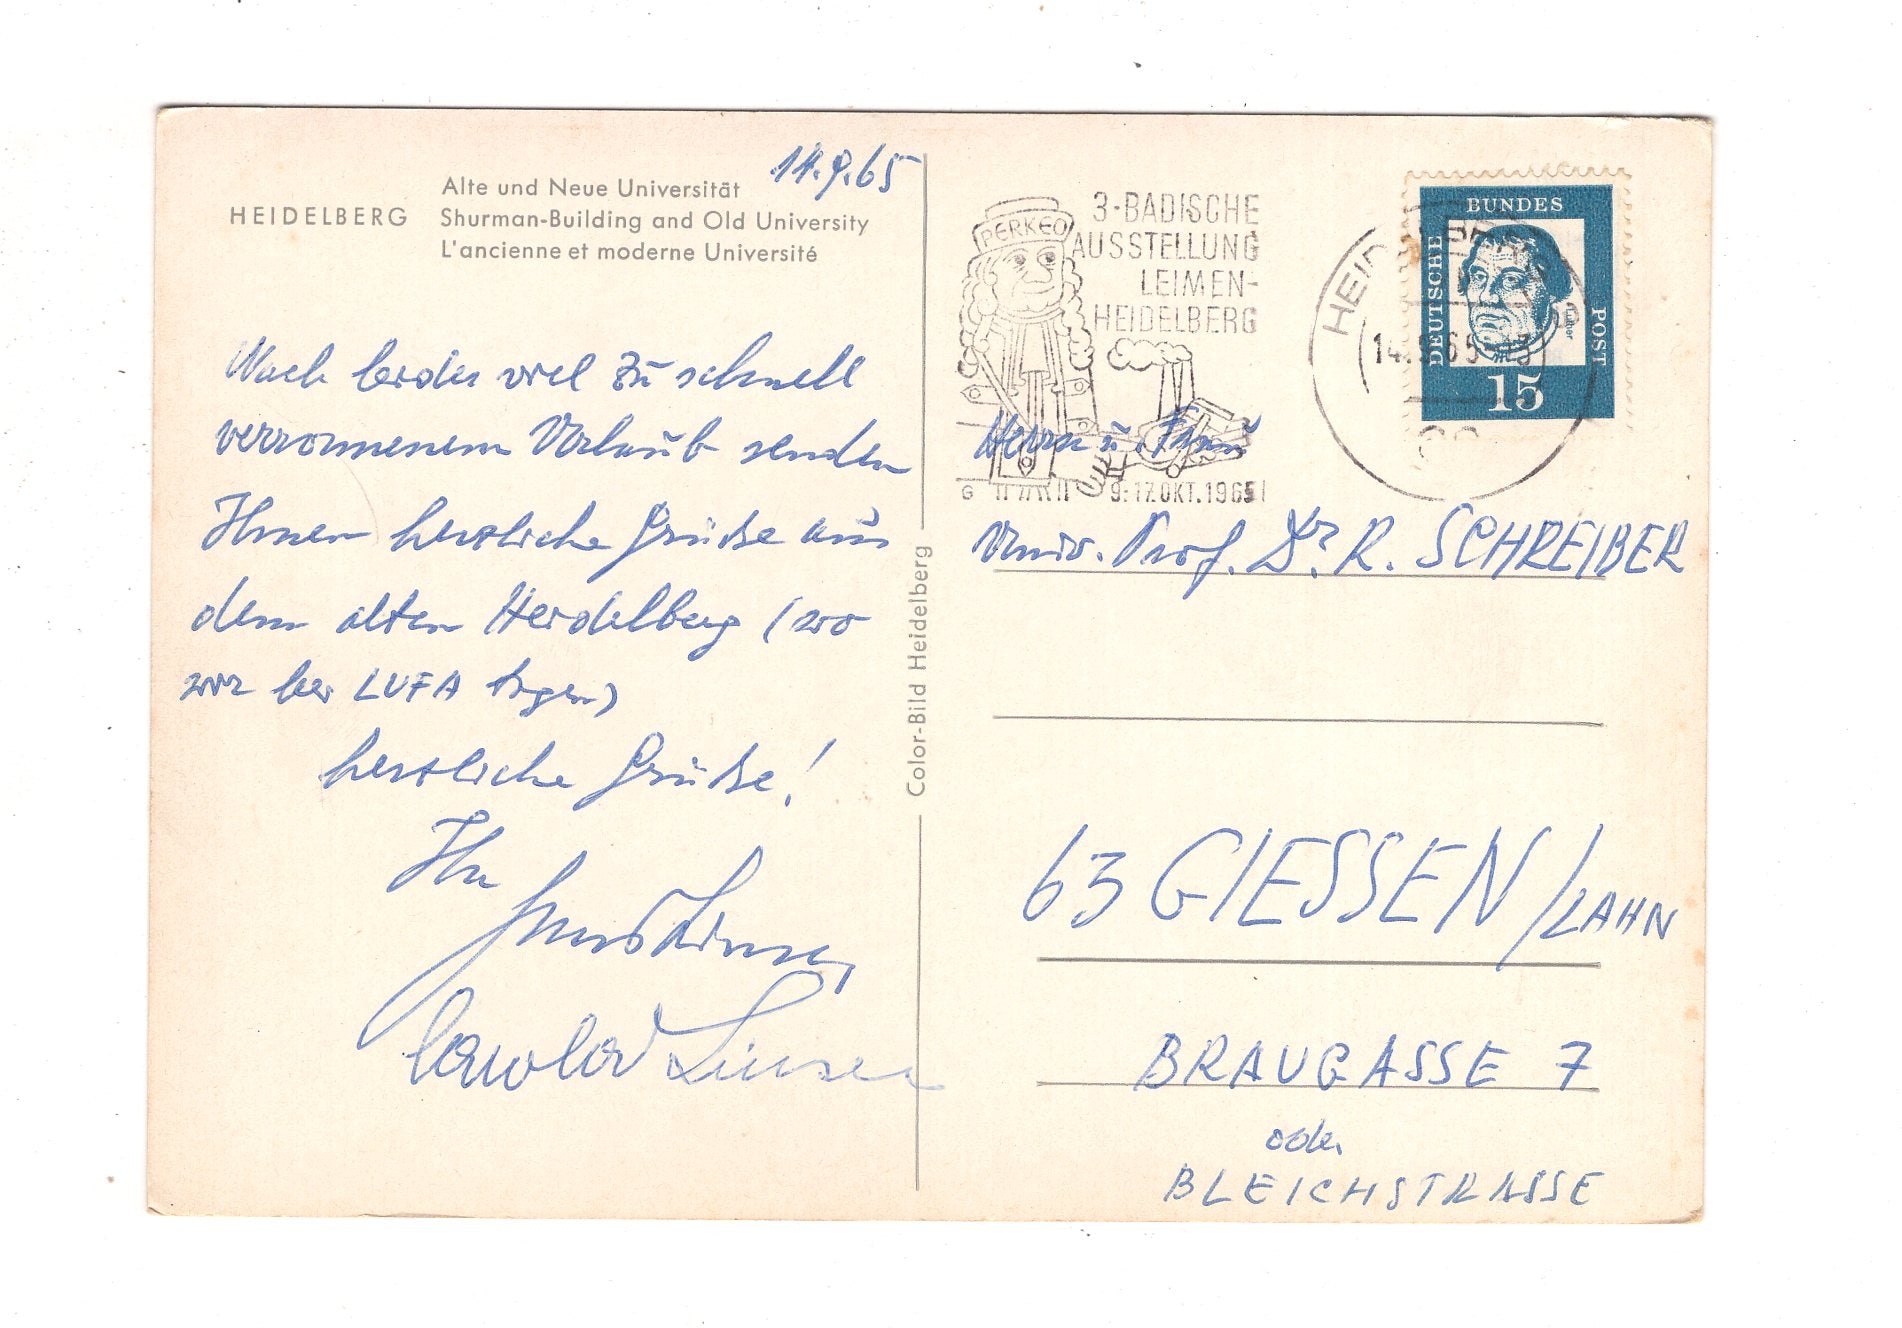 14.9.65
Alte und Neue Universität
HEIDELBERG Shurman-Building and Old University
L'ancienne et moderne Université
Nach leider viel zu schnell
verronnenem Urlaub senden
Ihnen herzliche Grüße aus
dem alten Heidelberg (wo
wir bei LUFA tagen)
herzliche Grüße!
Ihr
Color-Bild Heidelberg
PERKEO
3-BADISCHE
AUSSTELLUNG
LEIMEN-
HEIDELBERG
G 9.-17.OKT.1965
HEIDELBERG
14.9.65-13
DEUTSCHE
BUNDES
POST
Luther
15
Herrn u. Frau
Univ. Prof. Dr. R. SCHREIBER
63 GIESSEN/LAHN
BRAUGASSE 7
oder
BLEICHSTRASSE